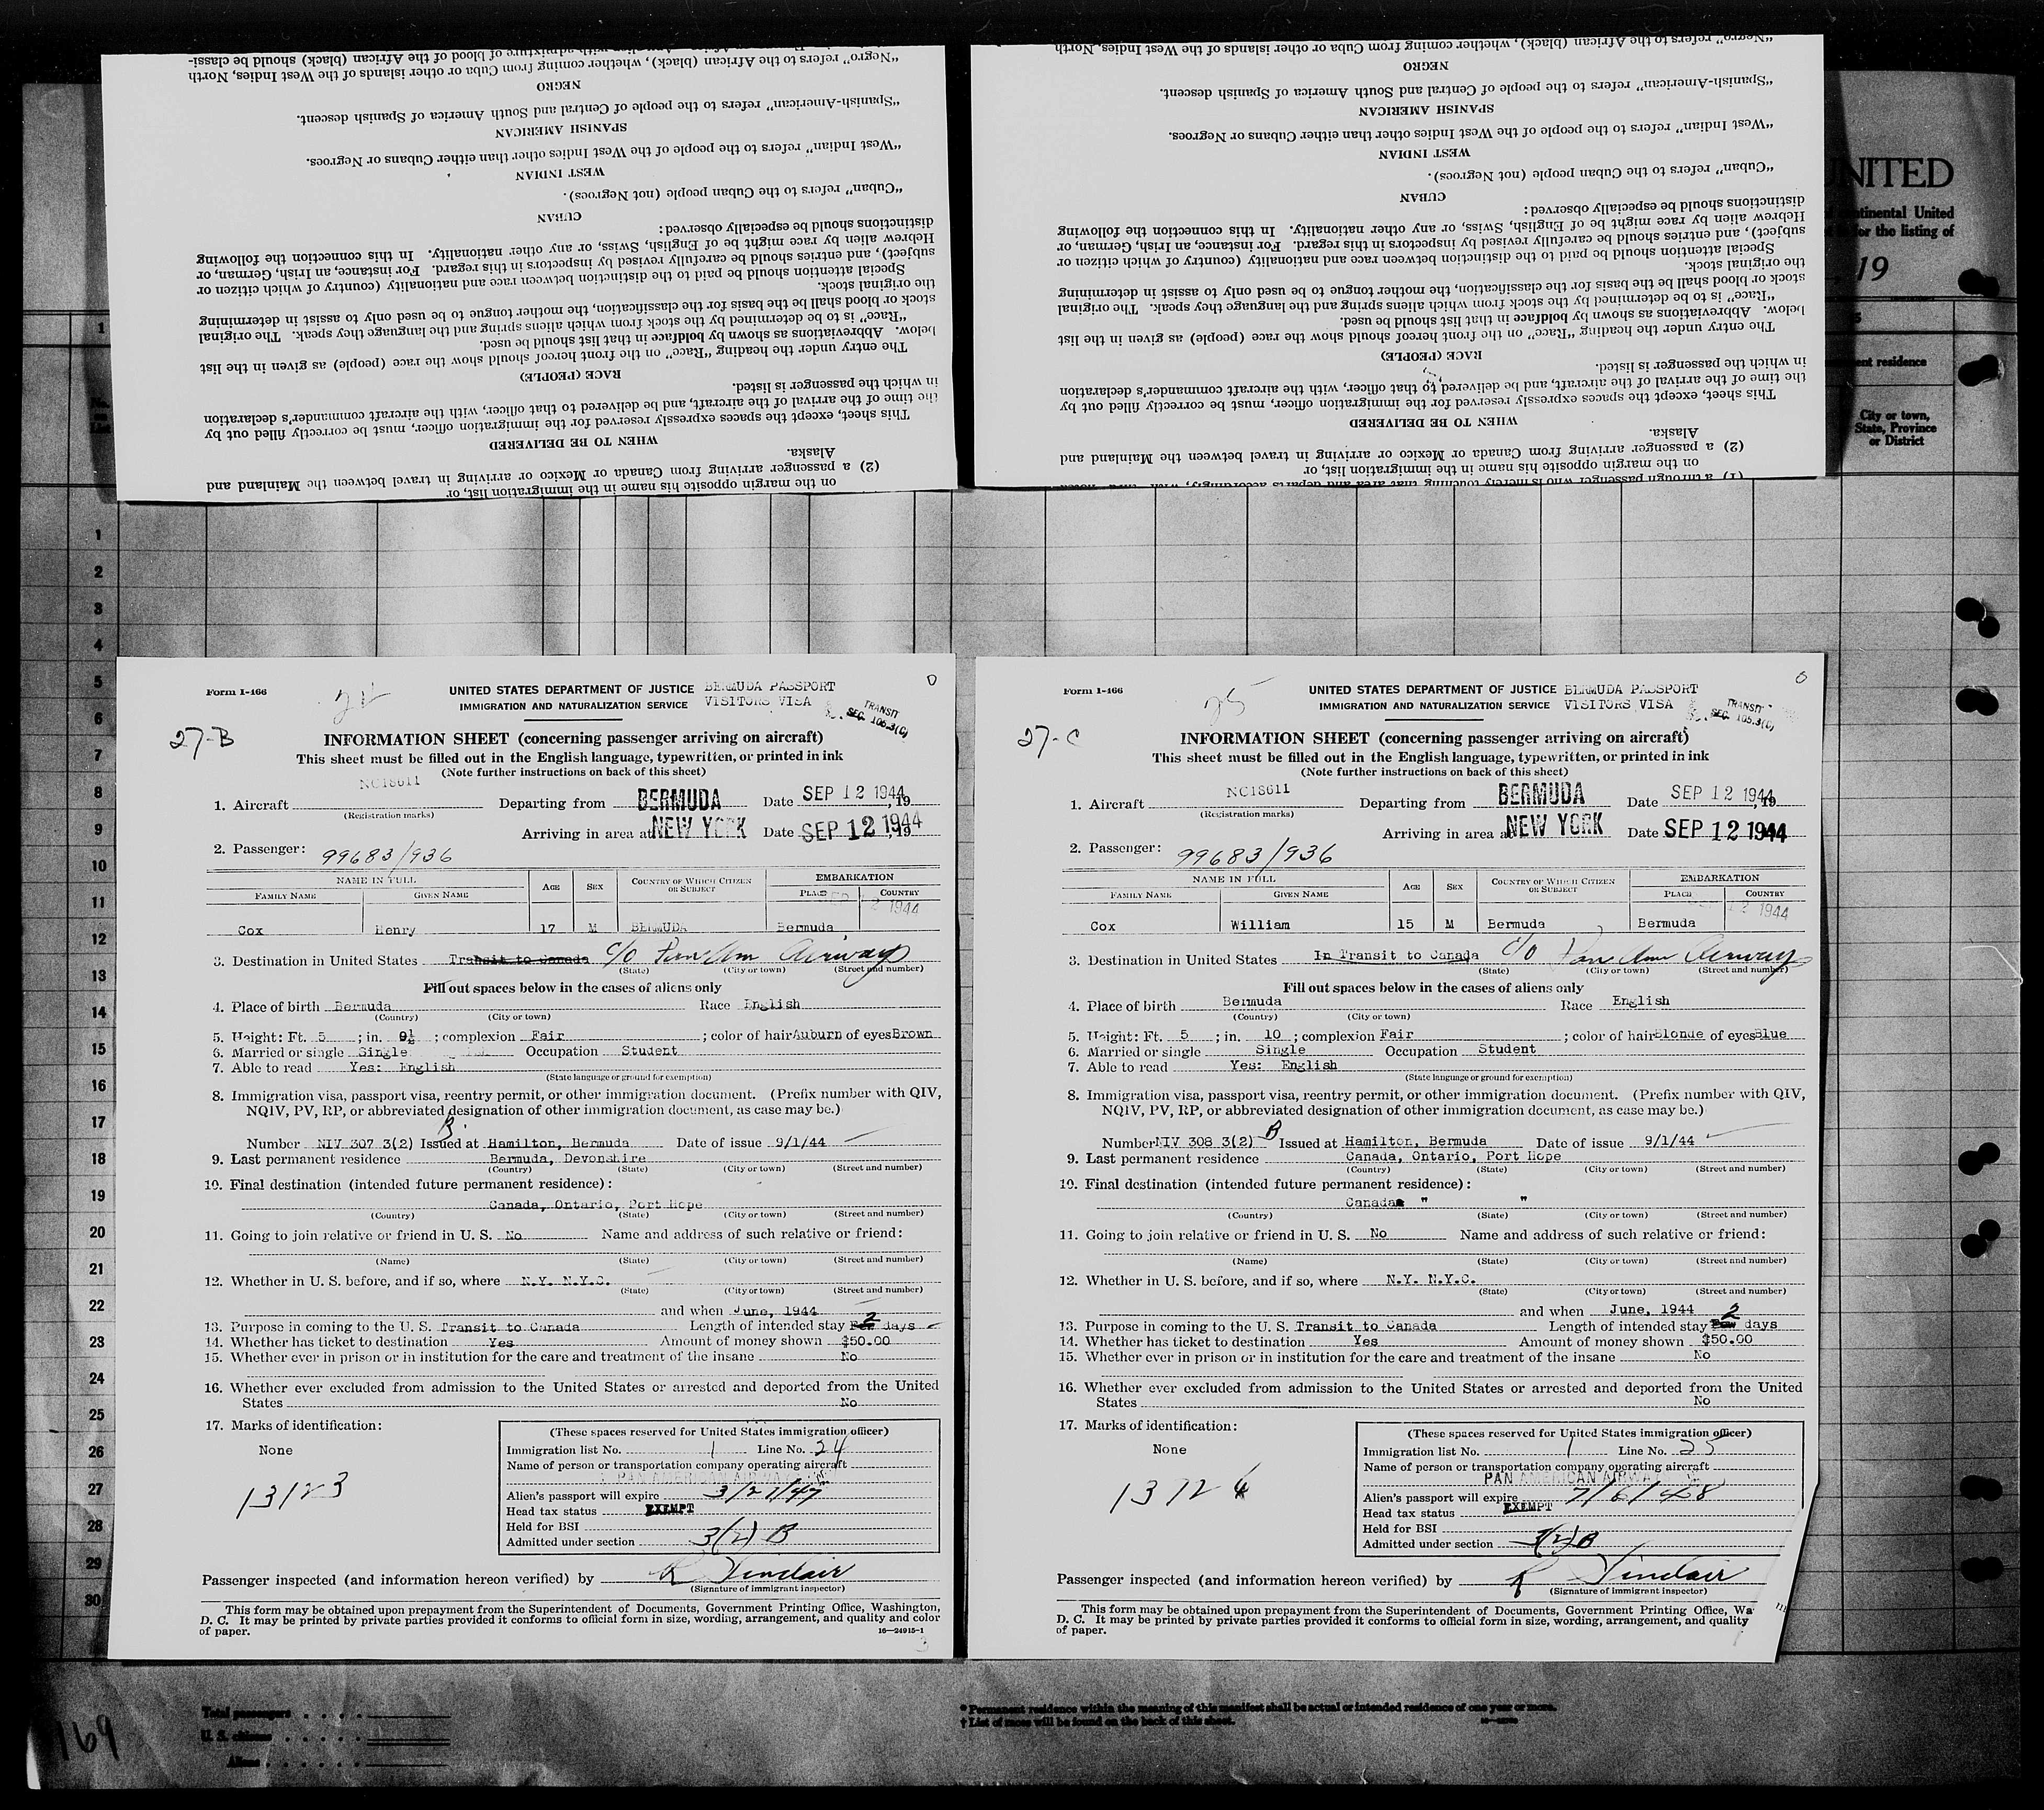 "Negro" refers to the African (black), whether coming from Cuba or other islands of the West Indies, North
blood of the African (black) should be classi-
NEGRO
"Spanish-American" refers to the people of Central and South America of Spanish descent.
SPANISH AMERICAN
"West Indian" refers to the people of the West Indies other than either Cubans or Negroes.
WEST INDIAN
"Cuban" refers to the Cuban people (not Negroes).
CUBAN
distinctions should be especially observed:
Hebrew alien by race might be of English, Swiss, or any other nationality. In this connection the following
subject), and entries should be carefully revised by inspectors in this regard. For instance, an Irish, German, or
Special attention should be paid to the distinction between race and nationality (country of which citizen or
the original stock.
stock or blood shall be the basis for the classification, the mother tongue to be used only to assist in determining
"Race" is to be determined by the stock from which aliens spring and the language they speak. The original
below. Abbreviations as shown by boldface in that list should be used.
The entry under the heading "Race" on the front hereof should show the race (people) as given in the list
RACE (PEOPLE)
in which the passenger is listed.
the time of the arrival of the aircraft, and be delivered to that officer, with the aircraft commander's declaration
This sheet, except the spaces expressly reserved for the immigration officer, must be correctly filled out by
WHEN TO BE DELIVERED
Alaska.
(2) a passenger arriving from Canada or Mexico or arriving in travel between the Mainland and
on the margin opposite his name in the immigration list, or
"Negro" refers to the African (black), whether coming from Cuba or other islands of the West Indies, North
NEGRO
"Spanish-American" refers to the people of Central and South America of Spanish descent.
SPANISH AMERICAN
"West Indian" refers to the people of the West Indies other than either Cubans or Negroes.
WEST INDIAN
"Cuban" refers to the Cuban people (not Negroes).
CUBAN
distinctions should be especially observed:
Hebrew alien by race might be of English, Swiss, or any other nationality. In this connection the following
subject), and entries should be carefully revised by inspectors in this regard. For instance, an Irish, German, or
Special attention should be paid to the distinction between race and nationality (country of which citizen or
the original stock.
stock or blood shall be the basis for the classification, the mother tongue to be used only to assist in determining
"Race" is to be determined by the stock from which aliens spring and the language they speak. The original
below. Abbreviations as shown by boldface in that list should be used.
The entry under the heading "Race" on the front hereof should show the race (people) as given in the list
RACE (PEOPLE)
in which the passenger is listed.
the time of the arrival of the aircraft, and be delivered to that officer, with the aircraft commander's declaration
This sheet, except the spaces expressly reserved for the immigration officer, must be correctly filled out by
WHEN TO BE DELIVERED
Alaska.
(2) a passenger arriving from Canada or Mexico or arriving in travel between the Mainland and
on the margin opposite his name in the immigration list, or
(1) a through passenger who is merely touching that area and departs accordingly,
UNITED
continental United
for the listing of
, 19
residence
City or town,
State, Province
or District
1
1
2
3
4
5
6
7
8
9
10
11
12
13
14
15
16
17
18
19
20
21
22
23
24
25
26
27
28
29
30
Form I-466
UNITED STATES DEPARTMENT OF JUSTICE BERMUDA PASSPORT
IMMIGRATION AND NATURALIZATION SERVICE VISITORS VISA
TRANSIT
SEC. 105.3(C)
27-B
INFORMATION SHEET (concerning passenger arriving on aircraft)
This sheet must be filled out in the English language, typewritten, or printed in ink
(Note further instructions on back of this sheet)
1. Aircraft NC18611 Departing from BERMUDA Date SEP 12 1944, 19
(Registration marks)
Arriving in area at NEW YORK Date SEP 12 1944, 19
2. Passenger: 99683/936
NAME IN FULL AGE SEX COUNTRY OF WHICH CITIZEN OR SUBJECT EMBARKATION
FAMILY NAME GIVEN NAME PLACE COUNTRY
SEP 12 1944
Cox Henry 17 M BERMUDA Bermuda
3. Destination in United States Transit to Canada c/o Pan Am Airways
(State) (City or town) (Street and number)
Fill out spaces below in the cases of aliens only
4. Place of birth Bermuda Race English
(Country) (City or town)
5. Height: Ft. 5; in. 9½; complexion Fair; color of hair Auburn of eyes Brown
6. Married or single Single Occupation Student
7. Able to read Yes: English
(State language or ground for exemption)
8. Immigration visa, passport visa, reentry permit, or other immigration document. (Prefix number with QIV,
NQIV, PV, RP, or abbreviated designation of other immigration document, as case may be.)
Number NIV 307 3(2) B Issued at Hamilton, Bermuda Date of issue 9/1/44
9. Last permanent residence Bermuda, Devonshire
(Country) (State) (City or town) (Street and number)
10. Final destination (intended future permanent residence):
Canada, Ontario, Port Hope
(Country) (State) (City or town) (Street and number)
11. Going to join relative or friend in U. S. No Name and address of such relative or friend:
(Name) (State) (City or town) (Street and number)
12. Whether in U. S. before, and if so, where N.Y. N.Y.C.
(State) (City or town) (Street and number)
and when June, 1944
13. Purpose in coming to the U. S. Transit to Canada Length of intended stay 2 days
14. Whether has ticket to destination Yes Amount of money shown $50.00
15. Whether ever in prison or in institution for the care and treatment of the insane No
16. Whether ever excluded from admission to the United States or arrested and deported from the United
States No
17. Marks of identification:
None
13123
(These spaces reserved for United States immigration officer)
Immigration list No. 1 Line No. 24
Name of person or transportation company operating aircraft
PAN AMERICAN AIRWAYS
Alien's passport will expire 3/27/47
Head tax status EXEMPT
Held for BSI
Admitted under section 3(2) B
Passenger inspected (and information hereon verified) by R Sinclair
(Signature of immigrant inspector)
This form may be obtained upon prepayment from the Superintendent of Documents, Government Printing Office, Washington,
D. C. It may be printed by private parties provided it conforms to official form in size, wording, arrangement, and quality and color
of paper.
16—24915-1
Form I-466
25
UNITED STATES DEPARTMENT OF JUSTICE BERMUDA PASSPORT
IMMIGRATION AND NATURALIZATION SERVICE VISITORS VISA
TRANSIT
SEC. 105.3(C)
27-C
INFORMATION SHEET (concerning passenger arriving on aircraft)
This sheet must be filled out in the English language, typewritten, or printed in ink
(Note further instructions on back of this sheet)
1. Aircraft NC18611 Departing from BERMUDA Date SEP 12 1944, 19
(Registration marks)
Arriving in area at NEW YORK Date SEP 12 1944
2. Passenger: 99683/936
NAME IN FULL AGE SEX COUNTRY OF WHICH CITIZEN OR SUBJECT EMBARKATION
FAMILY NAME GIVEN NAME PLACE COUNTRY
SEP 12 1944
Cox William 15 M Bermuda Bermuda
3. Destination in United States In Transit to Canada c/o Pan Am Airways
(State) (City or town) (Street and number)
Fill out spaces below in the cases of aliens only
4. Place of birth Bermuda Race English
(Country) (City or town)
5. Height: Ft. 5; in. 10; complexion Fair; color of hair Blonde of eyes Blue
6. Married or single Single Occupation Student
7. Able to read Yes: English
(State language or ground for exemption)
8. Immigration visa, passport visa, reentry permit, or other immigration document. (Prefix number with QIV,
NQIV, PV, RP, or abbreviated designation of other immigration document, as case may be.)
Number NIV 308 3(2) B Issued at Hamilton, Bermuda Date of issue 9/1/44
9. Last permanent residence Canada, Ontario, Port Hope
(Country) (State) (City or town) (Street and number)
10. Final destination (intended future permanent residence):
Canada " "
(Country) (State) (City or town) (Street and number)
11. Going to join relative or friend in U. S. No Name and address of such relative or friend:
(Name) (State) (City or town) (Street and number)
12. Whether in U. S. before, and if so, where N.Y. N.Y.C.
(State) (City or town) (Street and number)
and when June, 1944
13. Purpose in coming to the U. S. Transit to Canada Length of intended stay 2 days
14. Whether has ticket to destination Yes Amount of money shown $50.00
15. Whether ever in prison or in institution for the care and treatment of the insane No
16. Whether ever excluded from admission to the United States or arrested and deported from the United
States No
17. Marks of identification:
None
(These spaces reserved for United States immigration officer)
Immigration list No. 1 Line No. 25
Name of person or transportation company operating aircraft
PAN AMERICAN AIRWAYS
Alien's passport will expire 7/6/48
Head tax status EXEMPT
Held for BSI
Admitted under section 3(2) B
Passenger inspected (and information hereon verified) by R Sinclair
(Signature of immigrant inspector)
This form may be obtained upon prepayment from the Superintendent of Documents, Government Printing Office, Wa
D. C. It may be printed by private parties provided it conforms to official form in size, wording, arrangement, and quality
of paper.
Total passengers
U. S. citizens
Aliens
* Permanent residence within the meaning of this manifest shall be actual or intended residence of one year or more.
† List of races will be found on the back of this sheet.
169